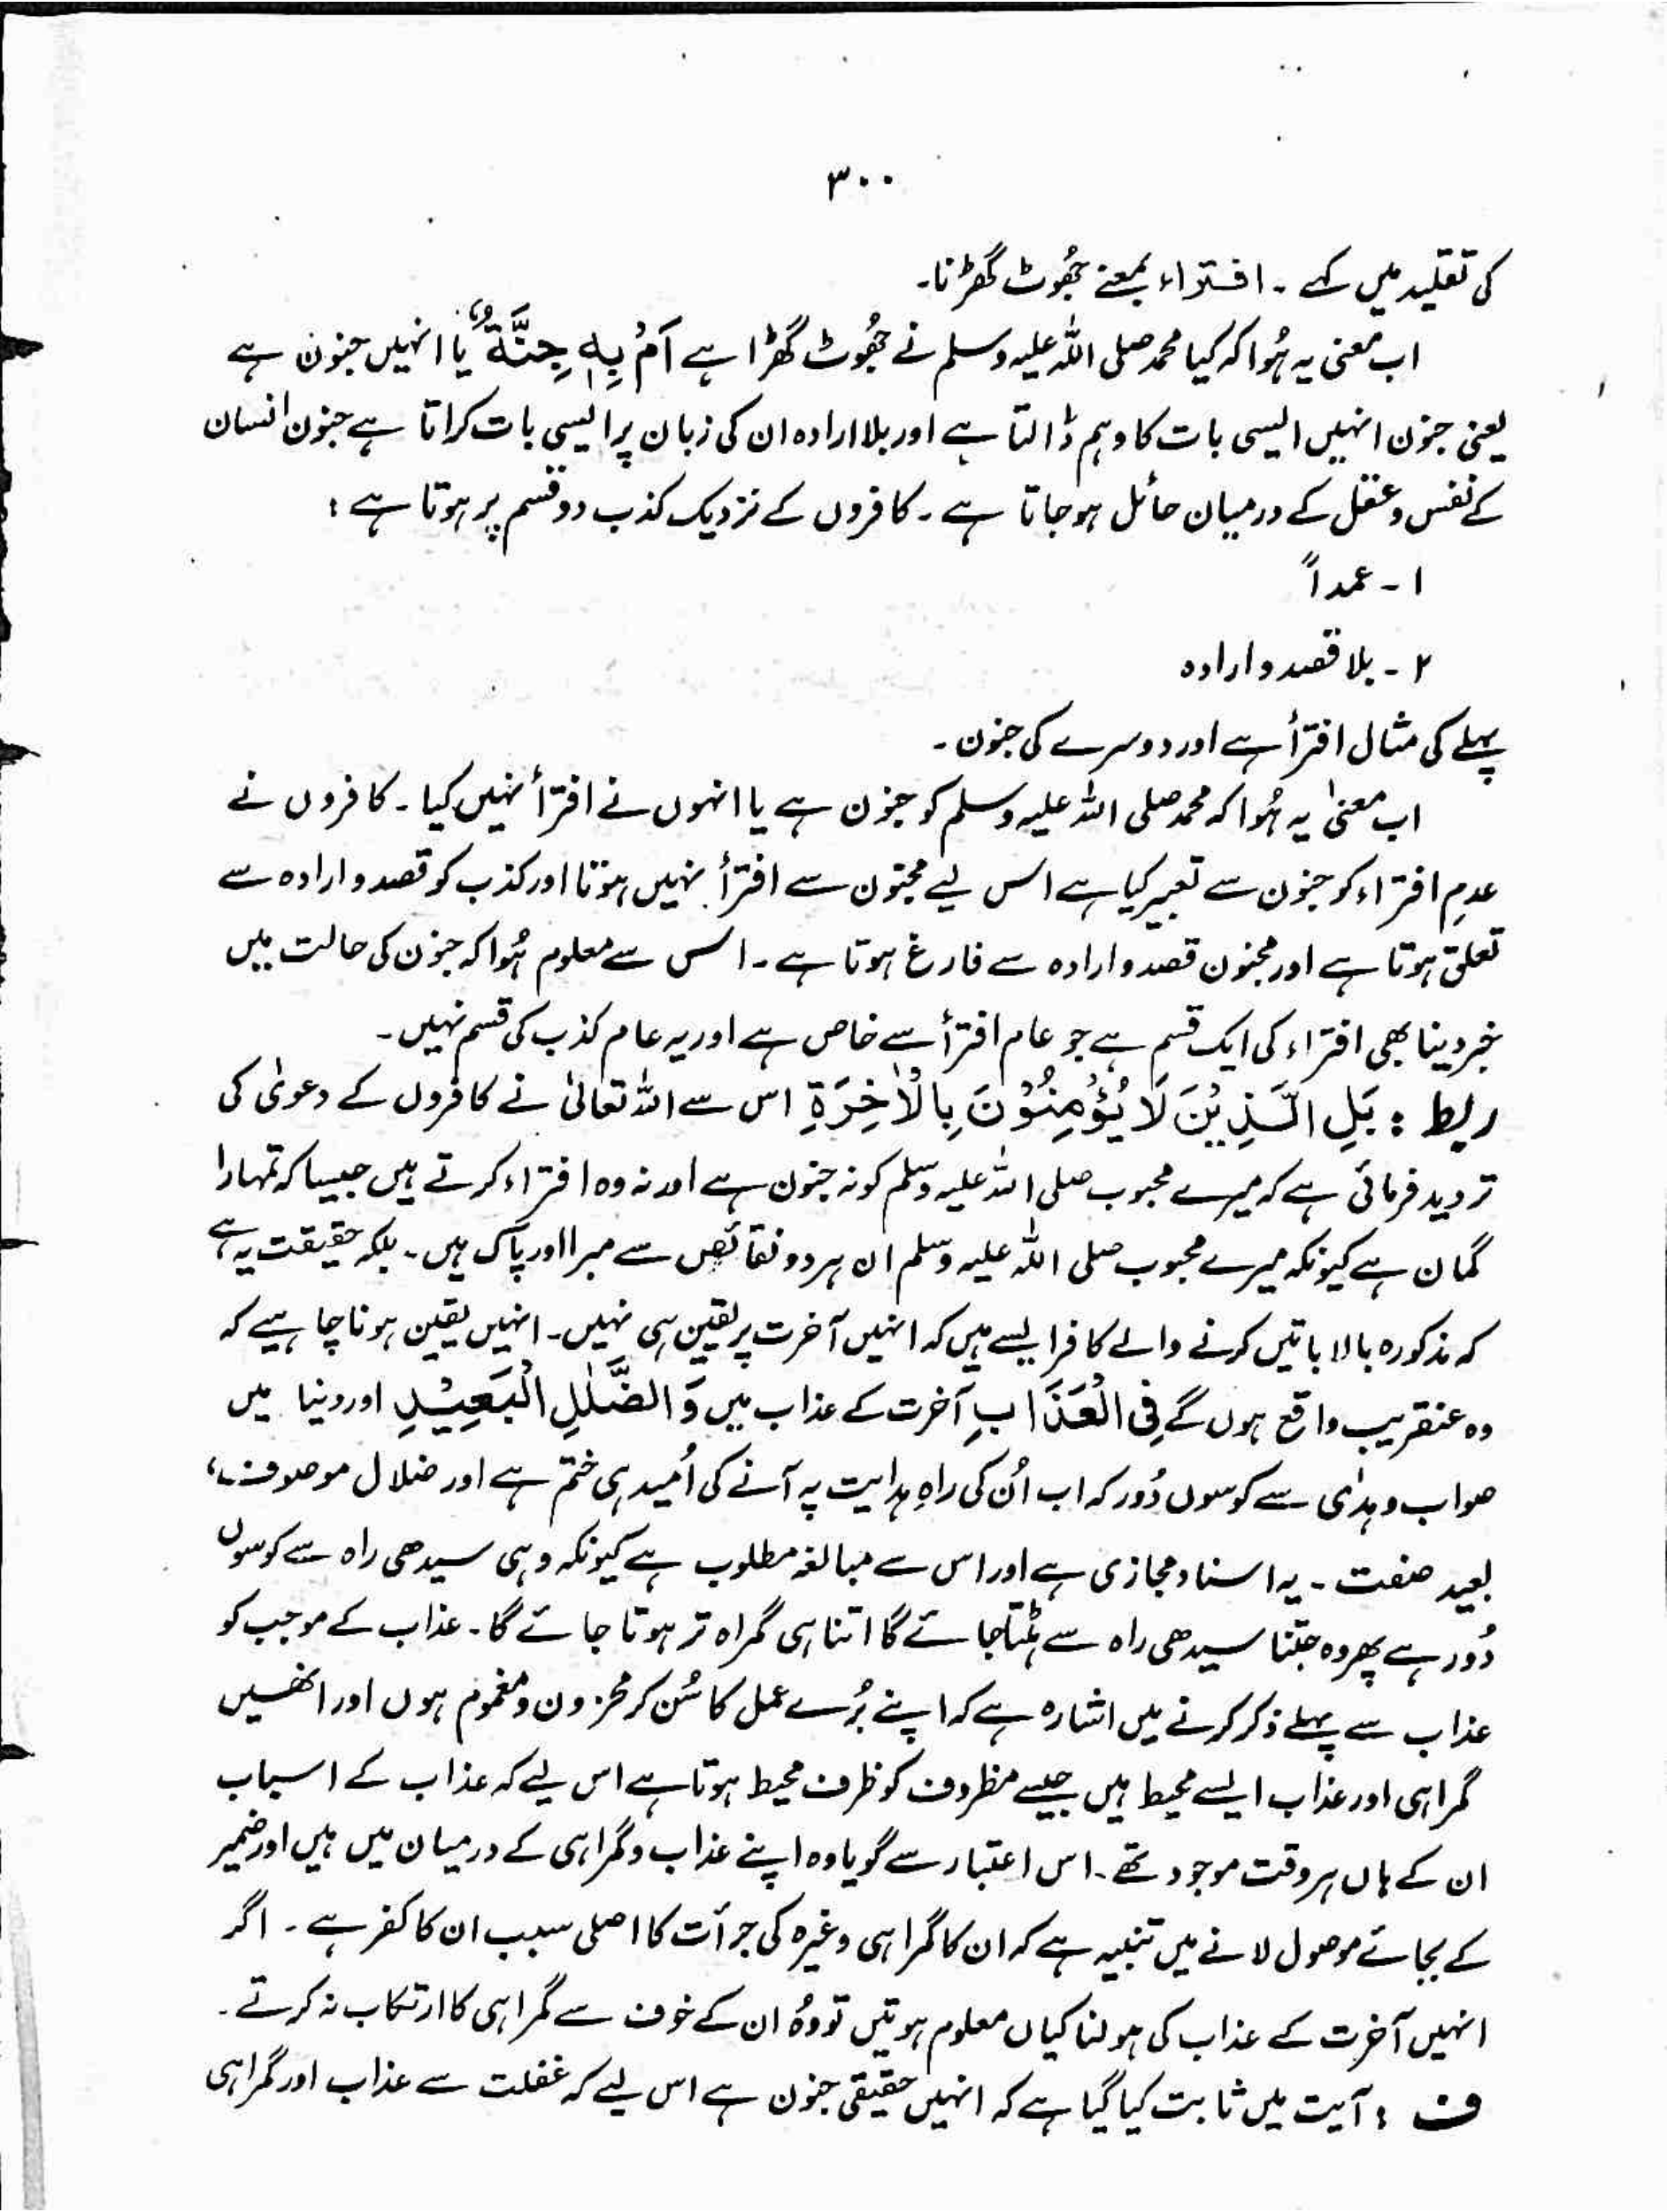 ۳۰۰
کی تقلید میں کہے ۔ افتراء بمعنے جھُوٹ گھڑنا۔
اب معنی یہ ہُوا کہ کیا محمد صلی اللہ علیہ وسلم نے جھُوٹ گھڑا ہے اَمْ بِہٖ جِنَّۃٌ ؕ یا انہیں جنون ہے
یعنی جنون انہیں ایسی بات کا وہم ڈالتا ہے اور بلا ارادہ ان کی زبان پر ایسی بات کراتا ہے جنون انسان
کے نفس و عقل کے درمیان حائل ہو جاتا ہے ۔ کافروں کے نزدیک کذب دو قسم پر ہوتا ہے :
۱ - عمداً
۲ - بلا قصد و ارادہ
پہلے کی مثال افترأ ہے اور دوسرے کی جنون ۔
اب معنیٰ یہ ہُوا کہ محمد صلی اللہ علیہ وسلم کو جنون ہے یا انہوں نے افترأ نہیں کیا ۔ کافروں نے
عدمِ افتراء کو جنون سے تعبیر کیا ہے اس لیے مجنون سے افترأ نہیں ہوتا اور کذب کو قصد و ارادہ سے
تعلق ہوتا ہے اور مجنون قصد و ارادہ سے فارغ ہوتا ہے ۔ اس سے معلوم ہُوا کہ جنون کی حالت میں
خبر دینا بھی افتراء کی ایک قسم ہے جو عام افترأ سے خاص ہے اور یہ عام کذب کی قسم نہیں ۔
ربط : بَلِ الَّذِیْنَ لَا یُؤْمِنُوْنَ بِالْاٰخِرَۃِ اس سے اللہ تعالیٰ نے کافروں کے دعویٰ کی
تردید فرمائی ہے کہ میرے محبوب صلی اللہ علیہ وسلم کو نہ جنون ہے اور نہ وہ افتراء کرتے ہیں جیسا کہ تمہارا
گمان ہے کیونکہ میرے محبوب صلی اللہ علیہ وسلم ان ہر دو نقائص سے مبرا اور پاک ہیں ۔ بلکہ حقیقت یہ ہے
کہ مذکورہ بالا باتیں کرنے والے کافر ایسے ہیں کہ انہیں آخرت پر یقین ہی نہیں ۔ انہیں یقین ہونا چاہیے کہ
وہ عنقریب واقع ہوں گے فِی الْعَذَابِ آخرت کے عذاب میں وَالضَّلٰلِ الْبَعِیْدِ اور دنیا میں
صواب و ہدٰی سے کوسوں دُور کہ اب اُن کی راہِ ہدایت پہ آنے کی اُمید ہی ختم ہے اور ضلال موصوف،
بعید صفت ۔ یہ اسناد مجازی ہے اور اس سے مبالغہ مطلوب ہے کیونکہ وہی سیدھی راہ سے کوسوں
دُور ہے پھر وہ جتنا سیدھی راہ سے ہٹتا جائے گا اتنا ہی گمراہ تر ہوتا جائے گا ۔ عذاب کے موجب کو
عذاب سے پہلے ذکر کرنے میں اشارہ ہے کہ اپنے بُرے عمل کا سُن کر محزون و مغموم ہوں اور انھیں
گمراہی اور عذاب ایسے محیط ہیں جیسے مظروف کو ظرف محیط ہوتا ہے اس لیے کہ عذاب کے اسباب
ان کے ہاں ہر وقت موجود تھے ۔ اس اعتبار سے گویا وہ اپنے عذاب و گمراہی کے درمیان میں ہیں اور ضمیر
کے بجائے موصول لانے میں تنبیہ ہے کہ ان کا گمراہی وغیرہ کی جرأت کا اصلی سبب ان کا کفر ہے ۔ اگر
انہیں آخرت کے عذاب کی ہولناکیاں معلوم ہوتیں تو وُہ ان کے خوف سے گمراہی کا ارتکاب نہ کرتے ۔
ف : آیت میں ثابت کیا گیا ہے کہ انہیں حقیقی جنون ہے اس لیے کہ غفلت سے عذاب اور گمراہی